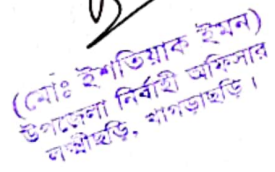 (মোঃ ইশতিয়াক ইমন)
উপজেলা নির্বাহী অফিসার
লক্ষ্মীছড়ি, খাগড়াছড়ি।